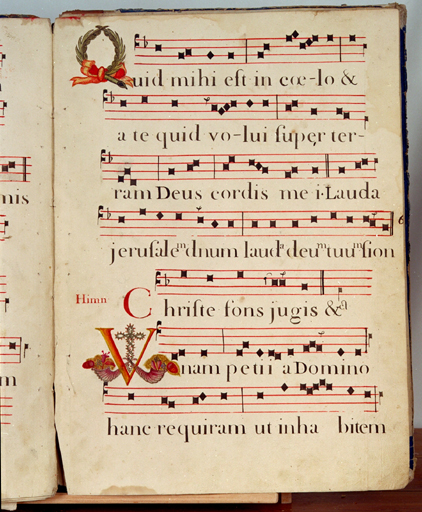 Quid mihi est in cœ-lo &
a te quid vo-lui super ter-
nis
ram Deus cordis me i. Lauda
jerusaleᵐ dnum laudᵃ deuᵐ tuuᵐ sion
Himn Christe fons jugis &ᵃ
Vnam petii a Domino
m
hanc requiram ut inha bitem